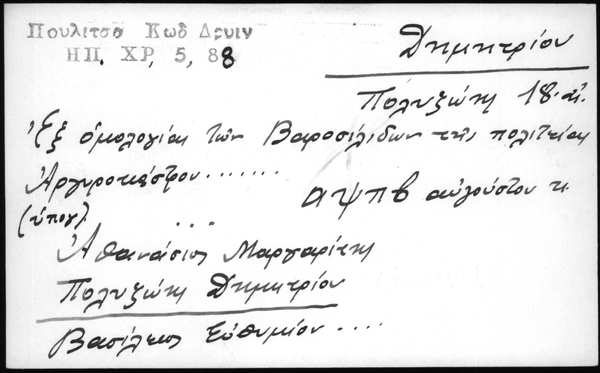 Πουλιτσα Κωδ Δρυιν
ΗΠ. ΧΡ, 5, 88
Δημητρίου
Πολυζώης 18.αἰ.
Ἐξ ὁμολογίας τῶν Βαροσιλίδων τῆς πολιτείας
Ἀργυροκάστρου.......
αψπβ αὐγούστου κ
(ὑπογ)
...
Ἀθανάσιος Μαργαρίτης
Πολυζώης Δημητρίου
Βασίλειος Εὐθυμίου ....